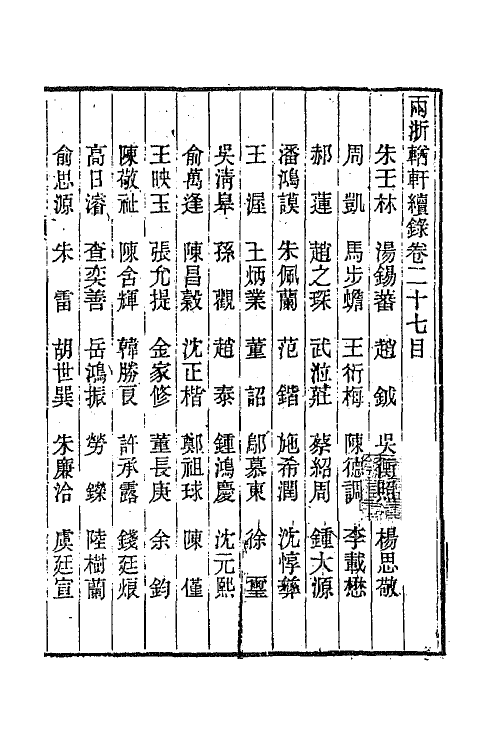 兩浙輶軒續錄卷二十七目
朱壬林　湯錫蕃　趙　鉞　吳衡照　楊思敬
周　凱　馬步蟾　王衍梅　陳德調　李載懋
郝　蓮　趙之琛　武澄莊　蔡紹周　鍾大源
潘鴻謨　朱佩蘭　范　鍇　施希潤　沈惇彝
王　渥　王炳業　董　詔　鄔慕東　徐　璽
吳淸皋　孫　觀　趙　泰　鍾鴻慶　沈元熙
俞萬逢　陳昌穀　沈正楷　鄭祖球　陳　僅
王映玉　張允提　金家修　董長庚　余　鈞
陳敬祉　陳含輝　韓勝良　許承露　錢廷烺
高日濬　查奕善　岳鴻振　勞　鑅　陸樹蘭
俞思源　朱　雷　胡世巽　朱廉洽　虞廷宣